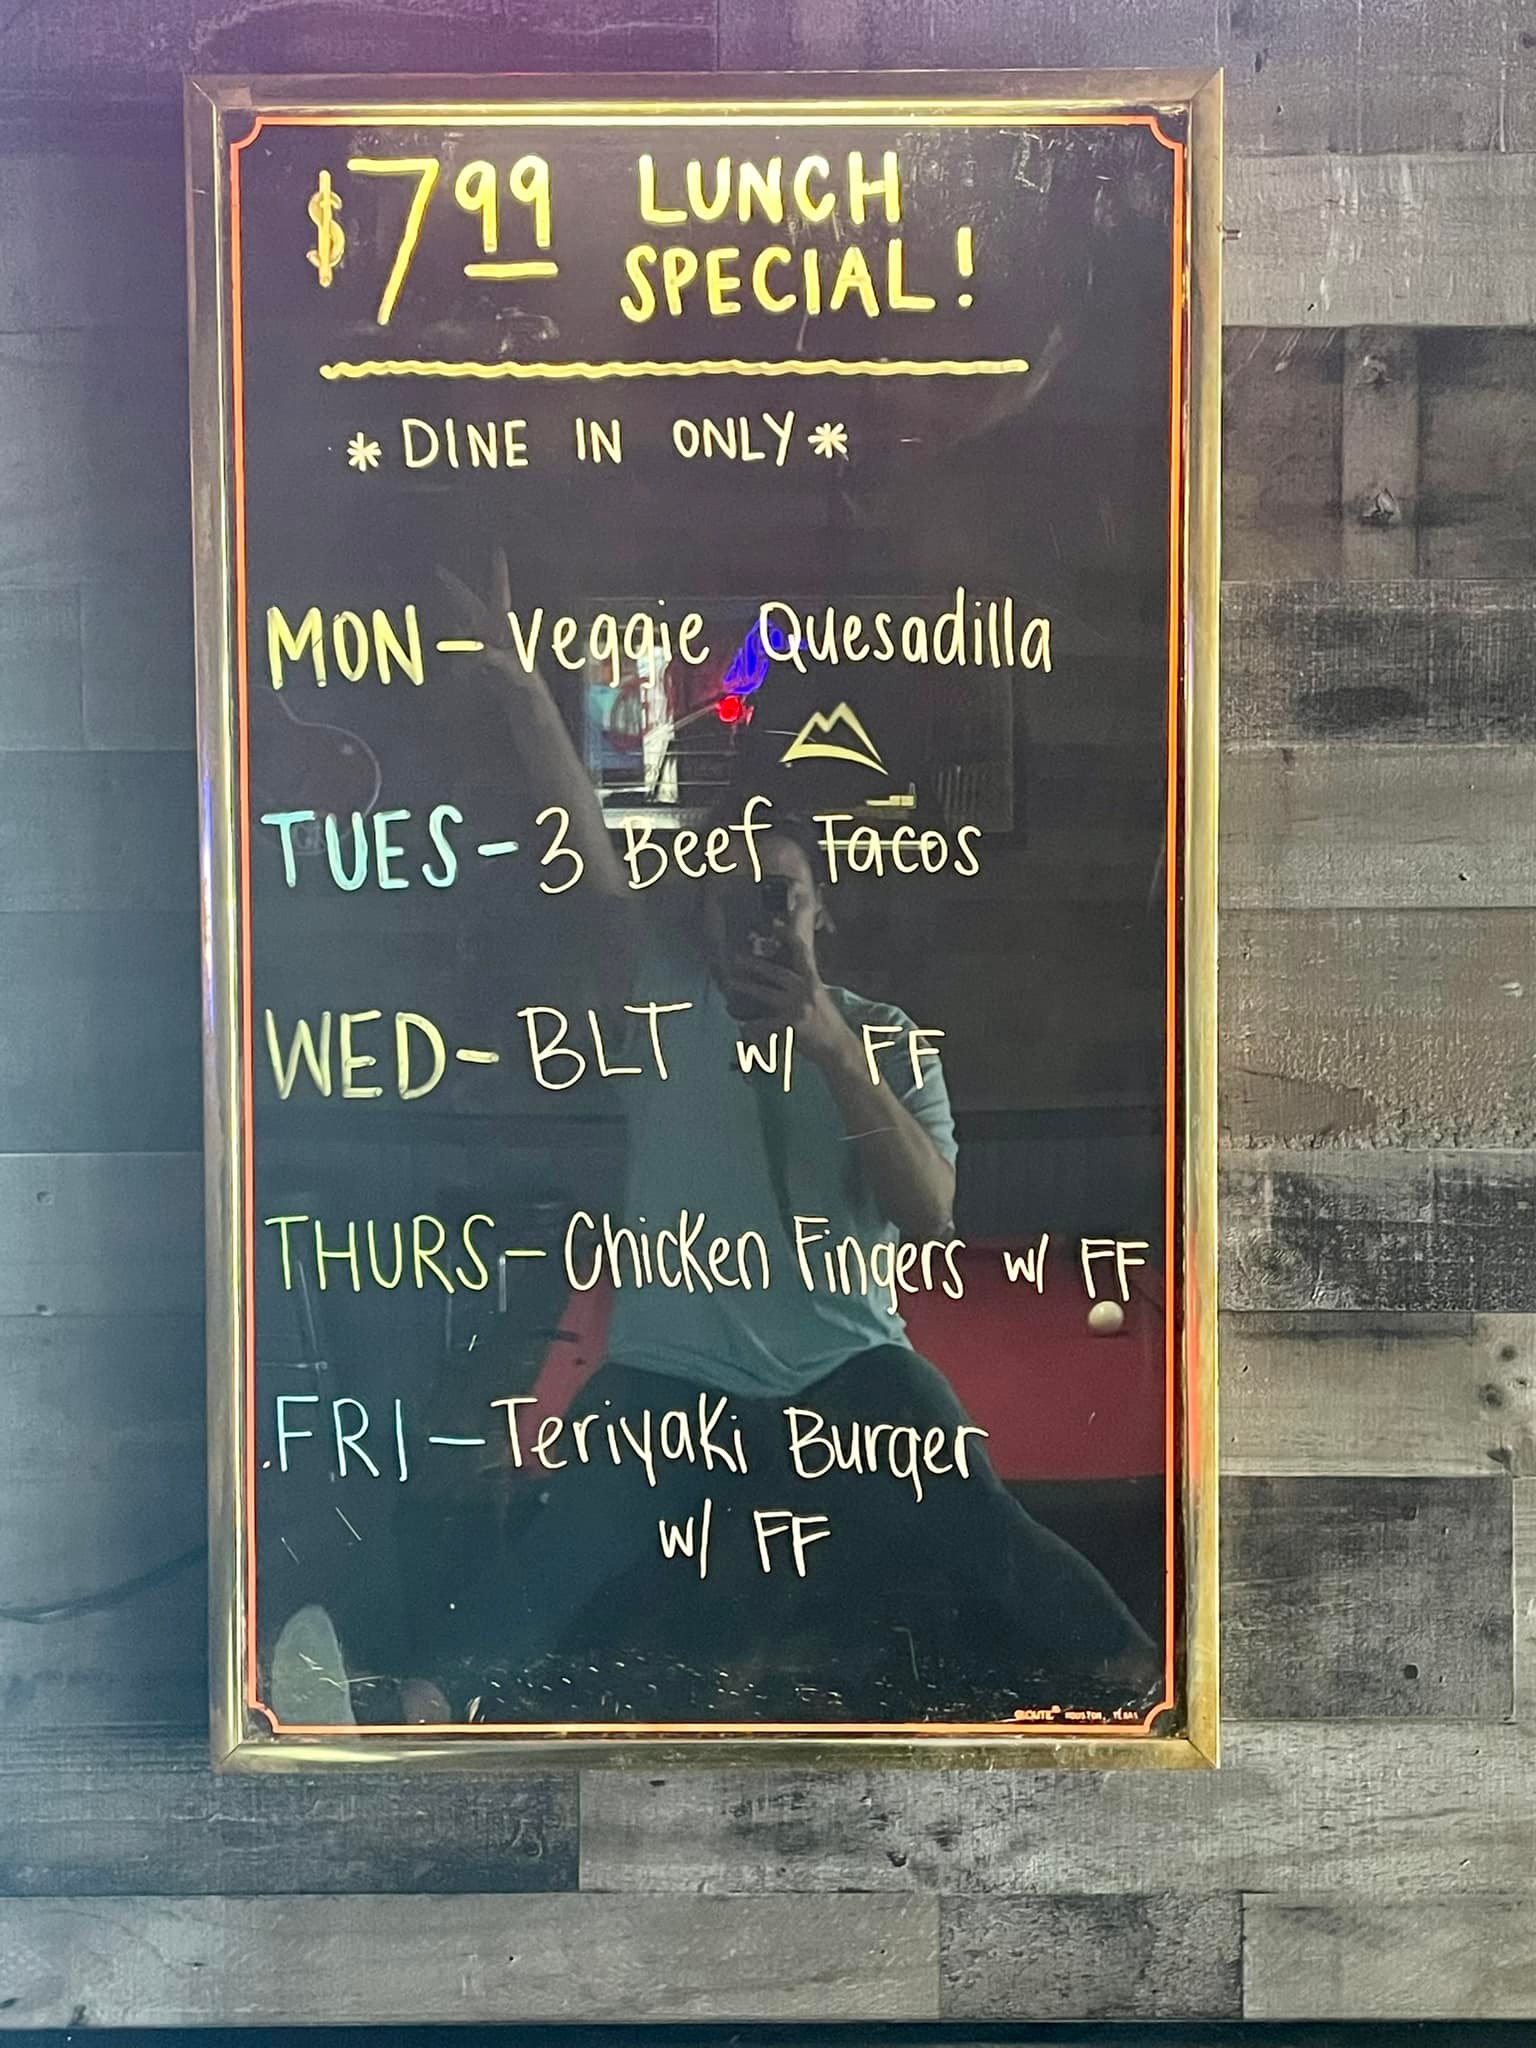 $7.99 LUNCH
SPECIAL!
* DINE IN ONLY *
MON - Veggie Quesadilla
TUES - 3 Beef Tacos
WED - BLT w/ FF
THURS - Chicken Fingers w/ FF
.FRI - Teriyaki Burger
w/ FF
HOUSTON, TEXAS